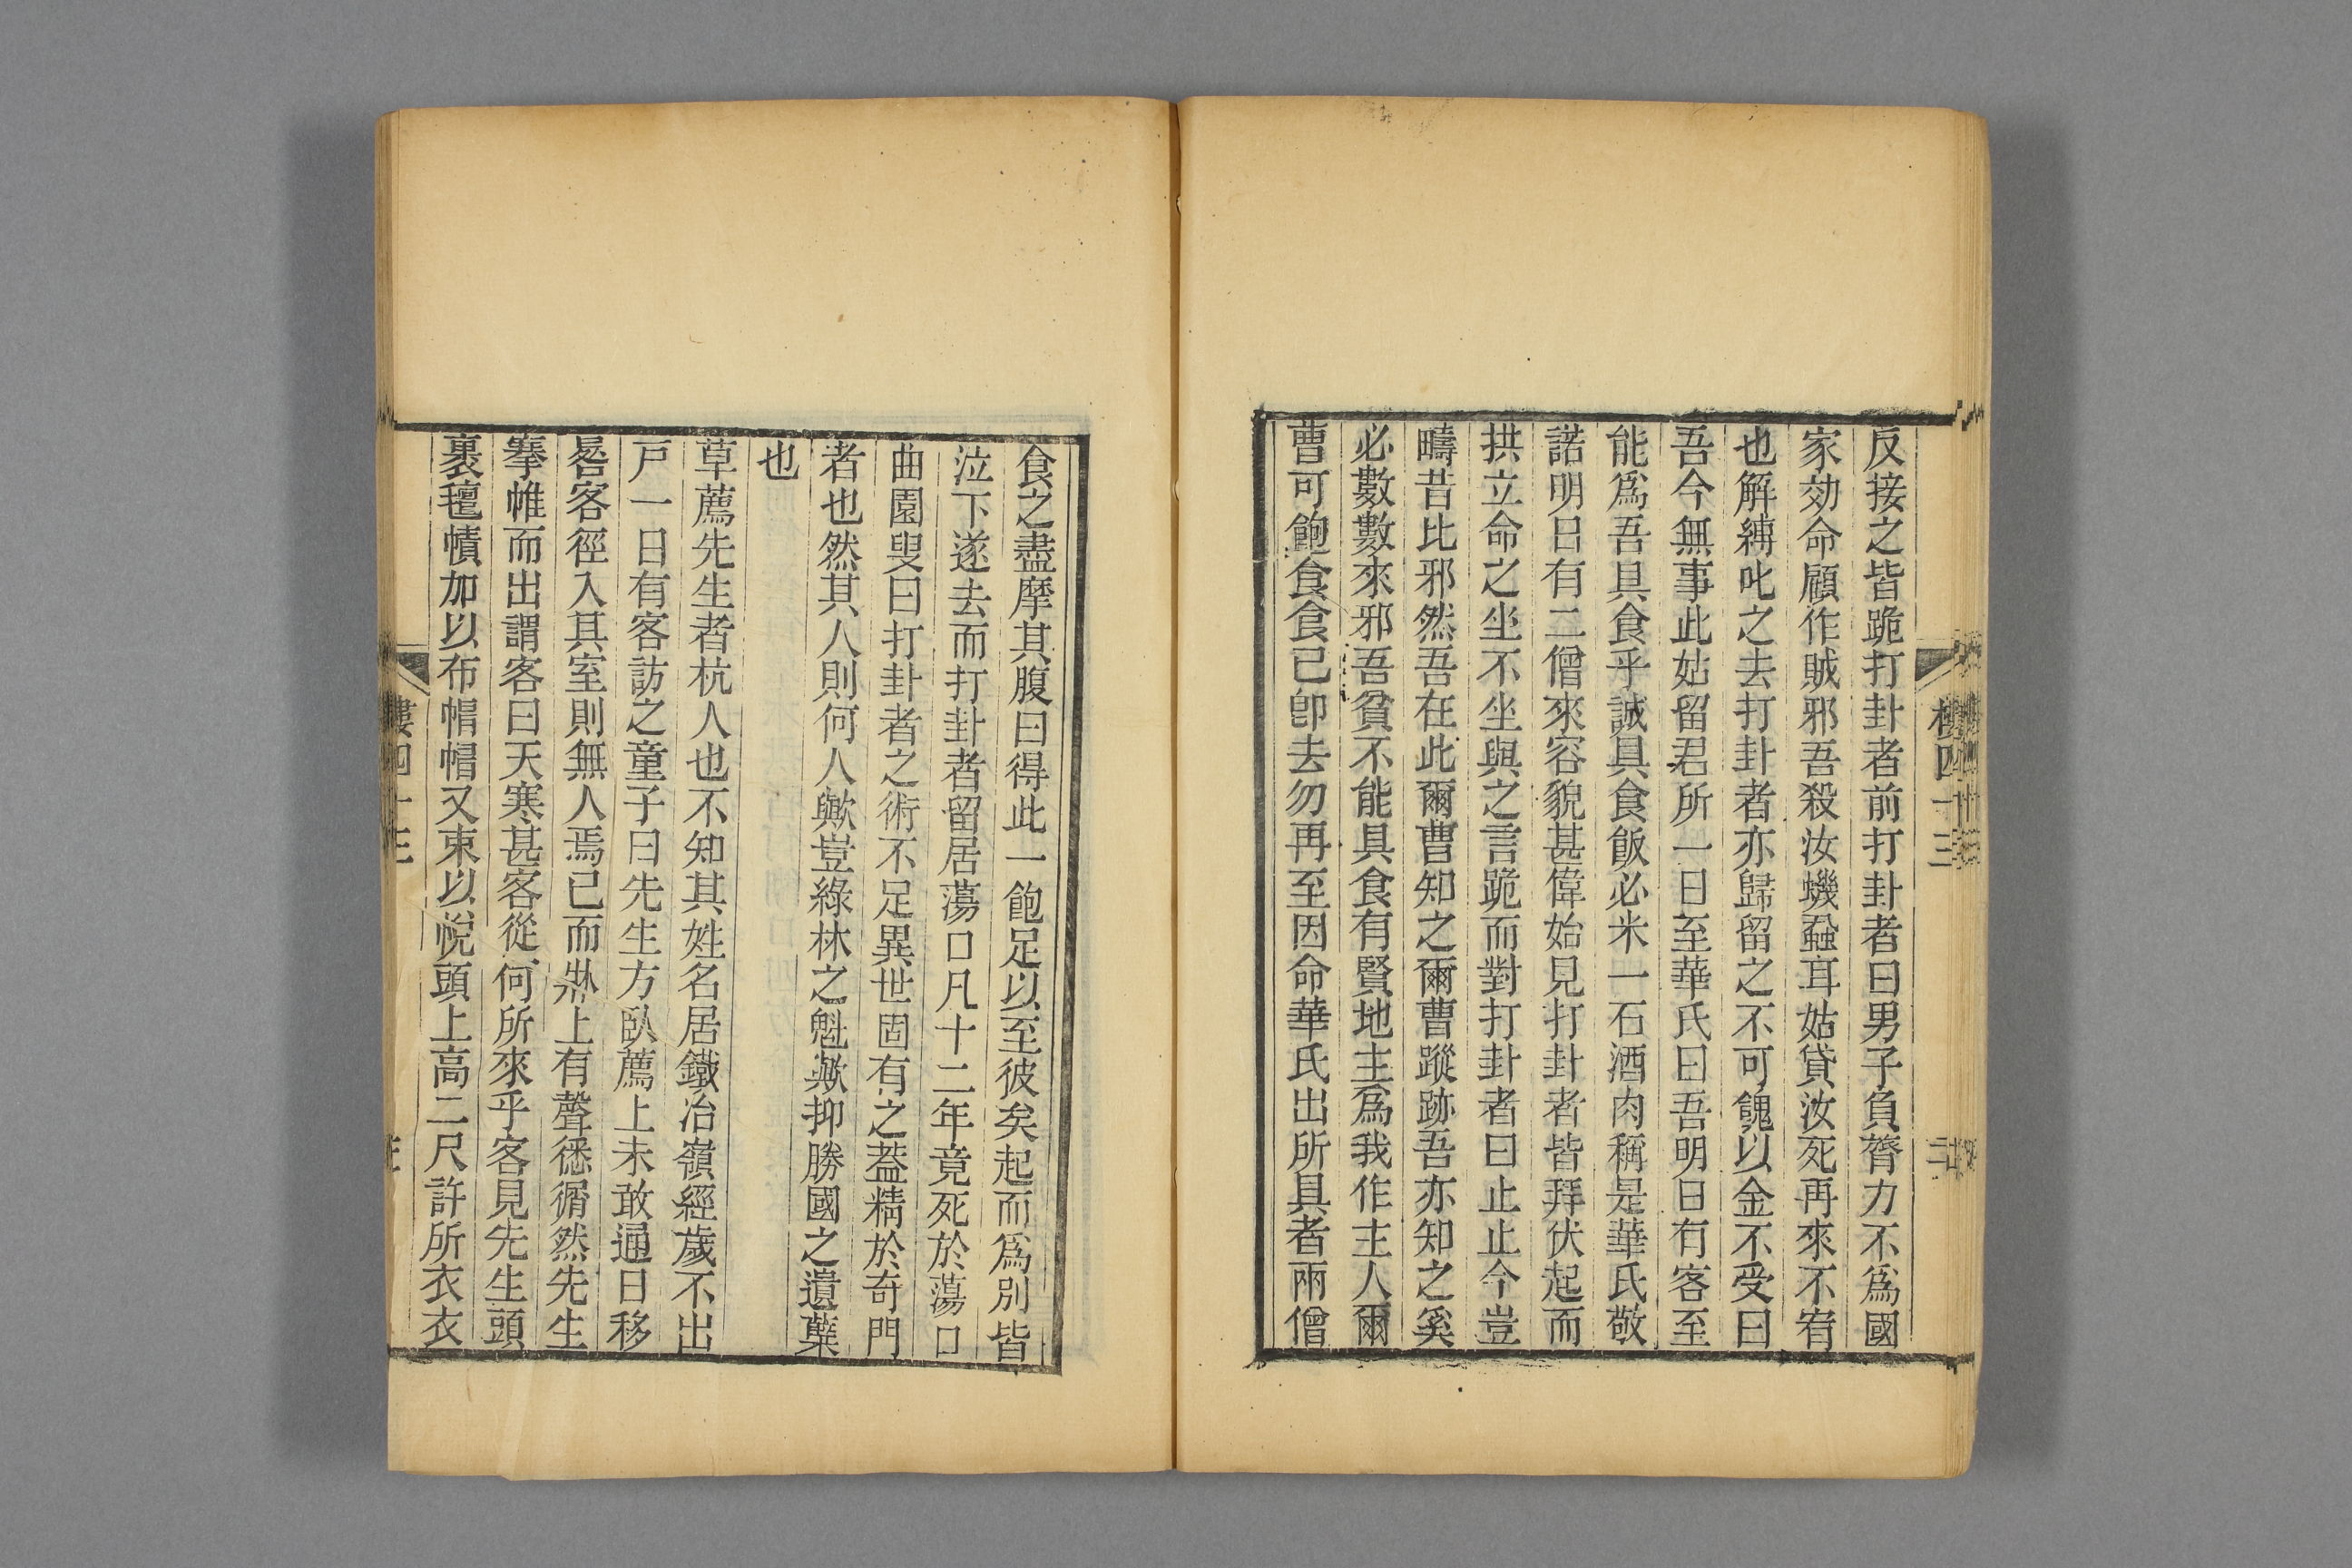 反接之皆跪打卦者前打卦者曰男子負膂力不爲國
家効命顧作賊邪吾殺汝蟣蝨耳姑貸汝死再來不宥
也解縛叱之去打卦者亦歸留之不可餽以金不受曰
吾今無事此姑留君所一日至華氏曰吾明日有客至
能爲吾具食乎誠具食飯必米一石酒肉稱是華氏敬
諾明日有二僧來容貌甚偉始見打卦者皆拜伏起而
拱立命之坐不坐與之言跪而對打卦者曰止止今豈
疇昔比邪然吾在此爾曹知之爾曹蹤跡吾亦知之奚
必數數來邪吾貧不能具食有賢地主爲我作主人爾
曹可飽食食已卽去勿再至因命華氏出所具者兩僧
食之盡摩其腹曰得此一飽足以至彼矣起而爲別皆
泣下遂去而打卦者留居蕩口凡十二年竟死於蕩口
曲園叟曰打卦者之術不足異世固有之葢精於奇門
者也然其人則何人歟豈綠林之魁歟抑勝國之遺蘖
也
草薦先生者杭人也不知其姓名居鐵冶嶺經歲不出
戸一日有客訪之童子曰先生方臥薦上未敢通日移
晷客徑入其室則無人焉已而牀上有聲僁僁然先生
搴帷而出謂客曰天寒甚客從何所來乎客見先生頭
裹氊幘加以布帽帽又束以帨頭上高二尺許所衣衣